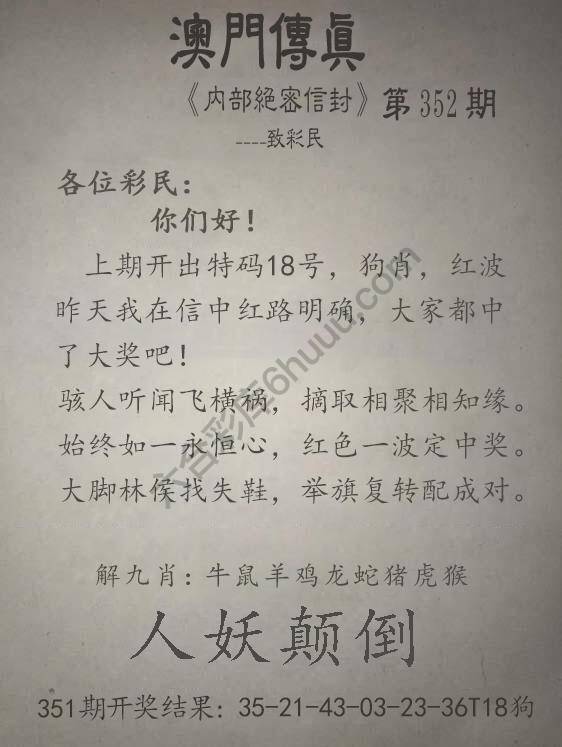 澳門傳眞
《内部絕密信封》第352期
----致彩民
各位彩民：
你们好！
上期开出特码18号，狗肖，红波
昨天我在信中红路明确，大家都中
了大奖吧！
骇人听闻飞横祸，摘取相聚相知缘。
始终如一永恒心，红色一波定中奖。
大脚林侯找失鞋，举旗复转配成对。
解九肖：牛鼠羊鸡龙蛇猪虎猴
人妖颠倒
351期开奖结果：35-21-43-03-23-36T18狗
六合彩库6huuu.com